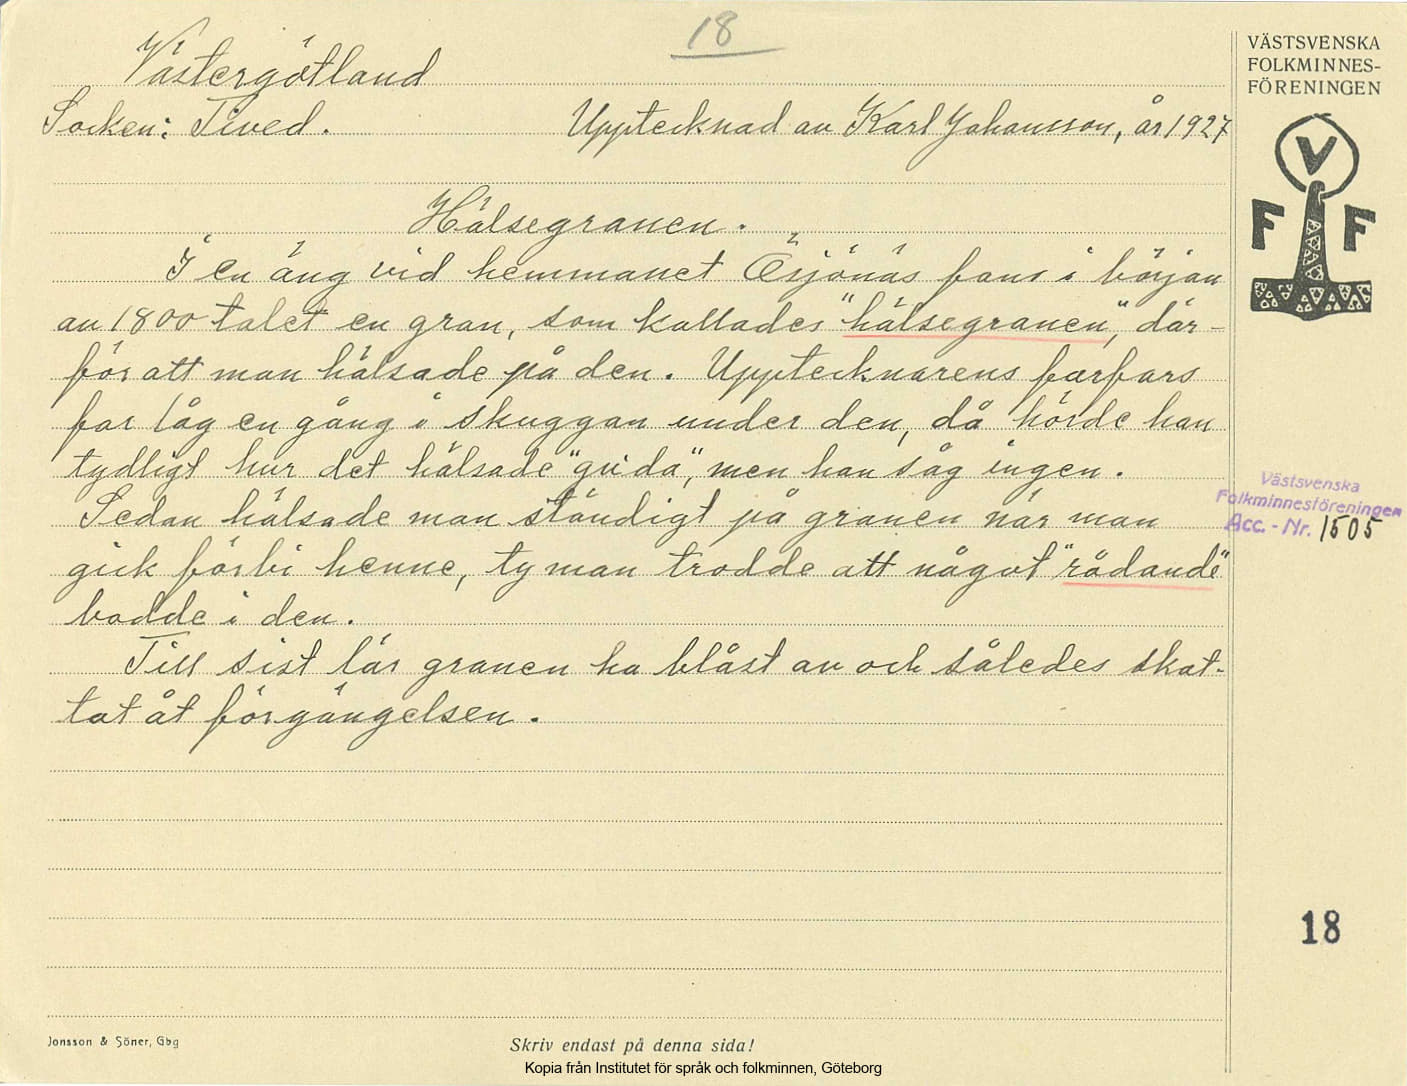 18
Västergötland
Socken: Tived.
Upptecknad av Karl Johansson, år 1927
Hälsegranen.
I en äng vid hemmanet Ösjönäs fans i början
av 1800 talet en gran, som kallades "hälsegranen", där-
för att man hälsade på den. Upptecknarens farfars
far låg en gång i skuggan under den, då hörde han
tydligt hur det hälsade "guda", men han såg ingen.
Sedan hälsade man ständigt på granen när man
gick förbi henne, ty man trodde att något "rådande"
bodde i den.
Till sist lär granen ha blåst av och således skat-
tat åt förgängelsen.
VÄSTSVENSKA
FOLKMINNES-
FÖRENINGEN
V
F F
Västsvenska
Folkminnesföreningen
Acc. - Nr. 1505
18
Jonsson & Söner, Gbg
Skriv endast på denna sida!
Kopia från Institutet för språk och folkminnen, Göteborg